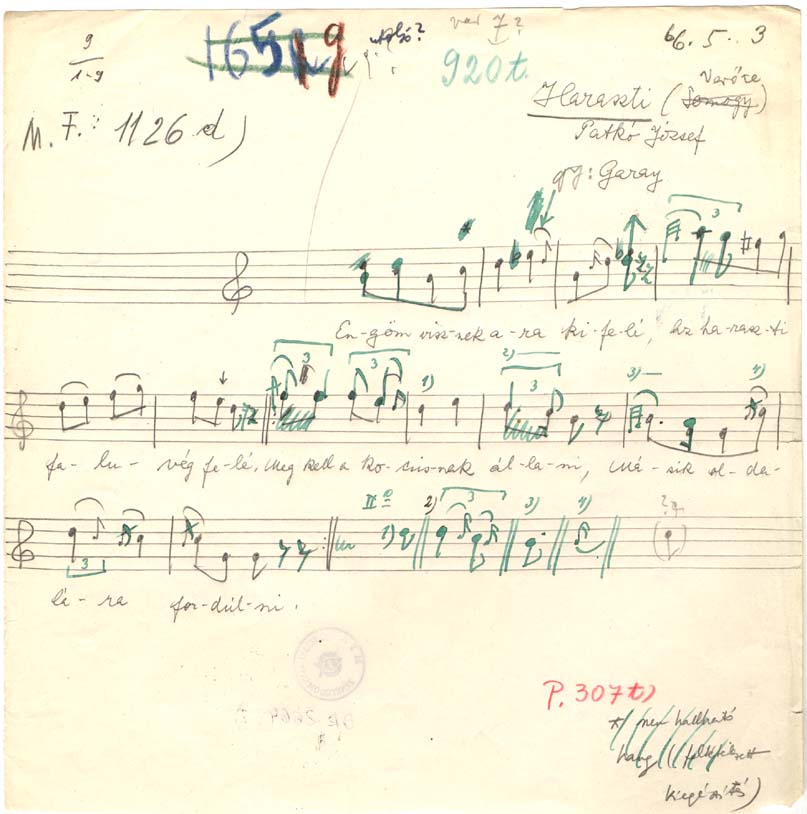 9
1-9
1651 19 utolsó?
var 7?
920t.
66. 5. 3
M. F.: 1126 d)
Haraszti (Somogy) Verőce
Patkó József
gy: Garay
3
En-göm visz-nek a-ra ki-fe-lé, Az ha-rasz-ti
3 3 1) 2) 3 3) 4)
fa-lu- vég fe-lé, Meg kell a ko-csis-nak ál-la-ni, Má-sik ol-da-
3 II 1) 2) 3 3) 4)
lá-ra for-dúl-ni.
P. 307t)
*) nem hallható
hang (
kiegészítés)